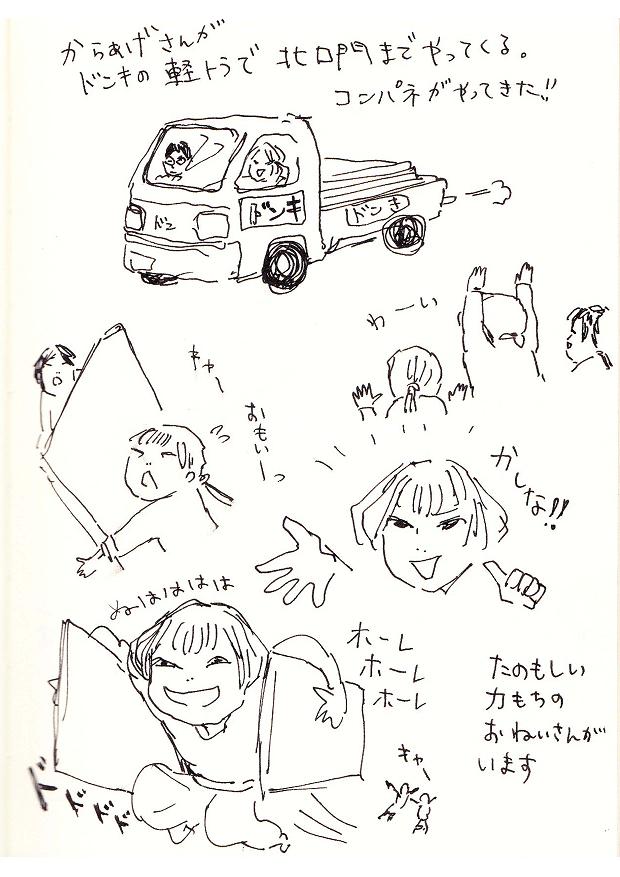 からあげさんが
ドンキの軽トラで 北口門までやってくる。
コンパネがやってきた!!
ドン
ドンキ
ドンキ
わーい
キャー
おもいーっ
かしな!!
ぬははははは
ホーレ
ホーレ
ホーレ
たのもしい
力もちの
おねいさんが
います
キャー
ドドドド